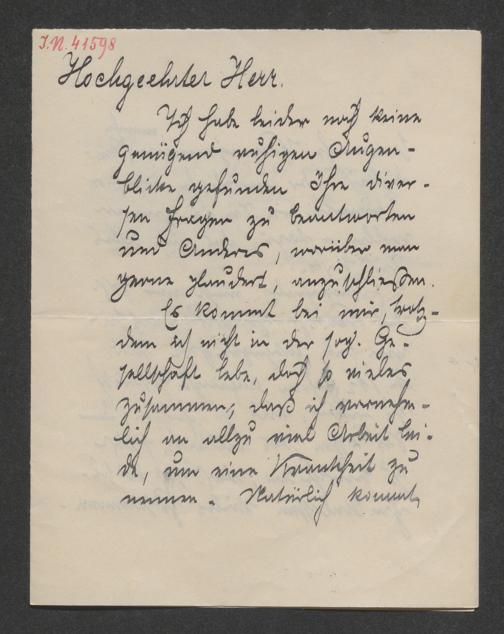 J.N. 41598
Hochgeehrter Herr.
Ich habe leider noch keine
genügend ruhigen Augen-
blicke gefunden Ihre diver-
sen Fragen zu beantworten
und Anderes, worüber man
gerne plaudert, anzuschließen.
Es kommt bei mir, trotz-
dem ich nicht in der sog. Ge-
sellschaft lebe, doch so vieles
zusammen, daß ich vornehm-
lich an allzu viel Arbeit lei-
de, um eine Krankheit zu
nennen. Natürlich kommt